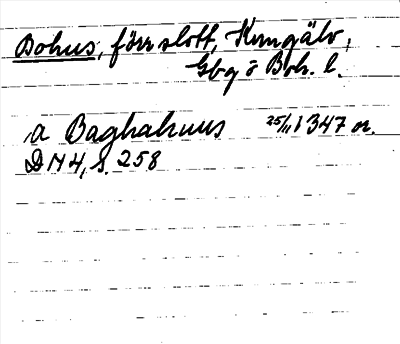 Bohus, förr slott, Kungälv,
Gbg o Boh. l.
a Baghahuus 25/11 1347 or.
DN 4, s. 258